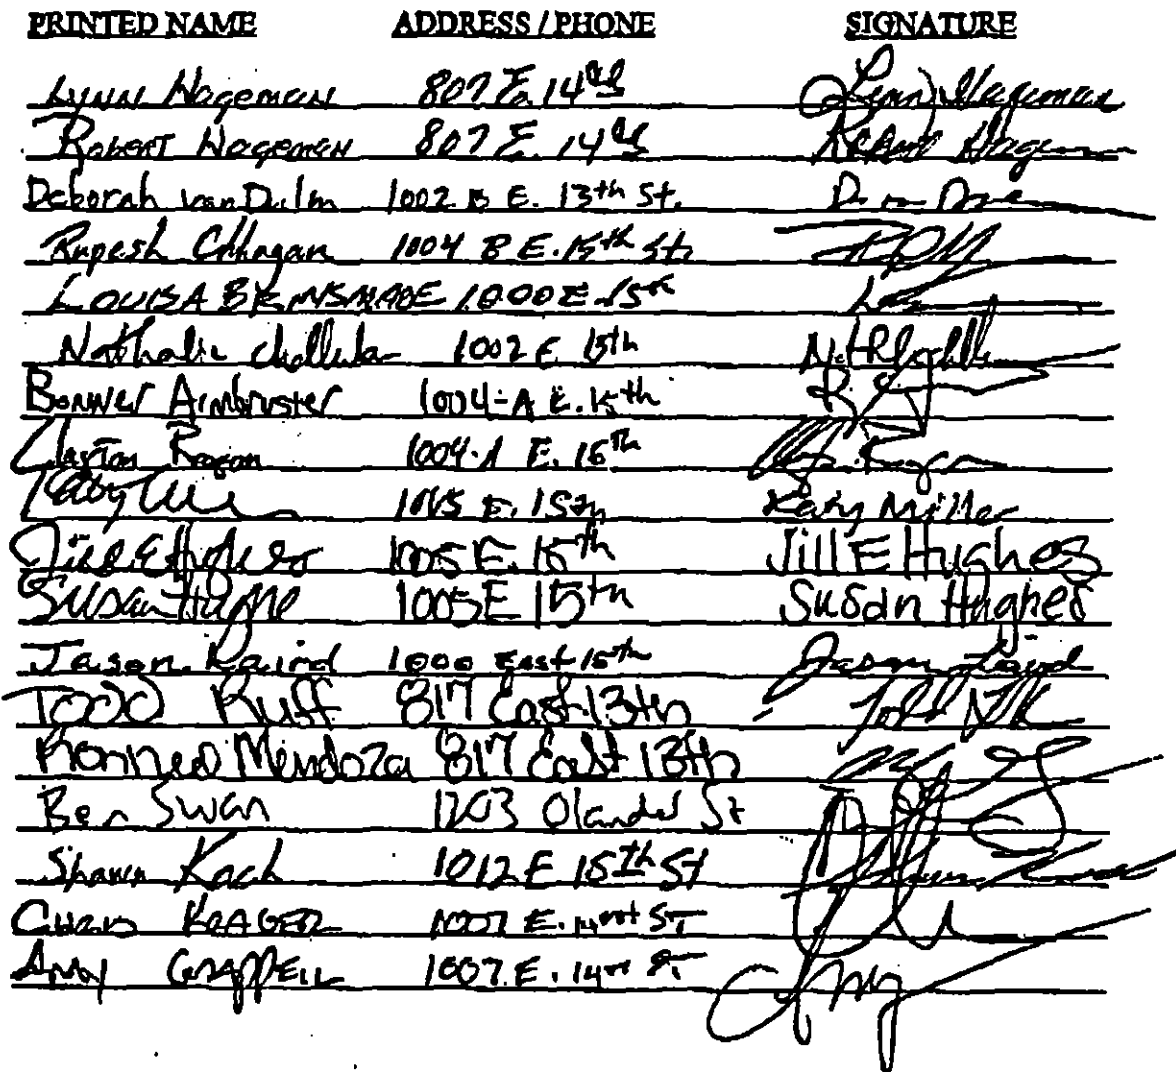 PRINTED NAME ADDRESS / PHONE SIGNATURE
Lynn Hageman 807 E. 14th Lynn Hageman
Robert Hageman 807 E. 14th Robert Hageman
Deborah van Dulm 1002 B E. 13th St.
Rupesh Chhagan 1004 B E. 15th St
LOUISA BRINSMADE 1000 E. 15th
Nathalie 1002 E. 15th
Bonner Armbruster 1004-A E. 15th
Clayton Reagan 1004-A E. 15th
Katy E. 15th Katy Miller
Jill E Hughes 1005 E. 15th Jill E Hughes
Susan 1005 E 15th Susan Hughes
Jason 1000 East 15th Jason
TODD Ruff 817 East 13th Todd
Mendoza 817 East 13th
Ben Swan 1203 Olander St
Shawn Kach 1012 E 15th St Shawn
CHRIS KRAGER 1007 E. 14th ST
Amy GRAPPELL 1007 E. 14th ST Amy